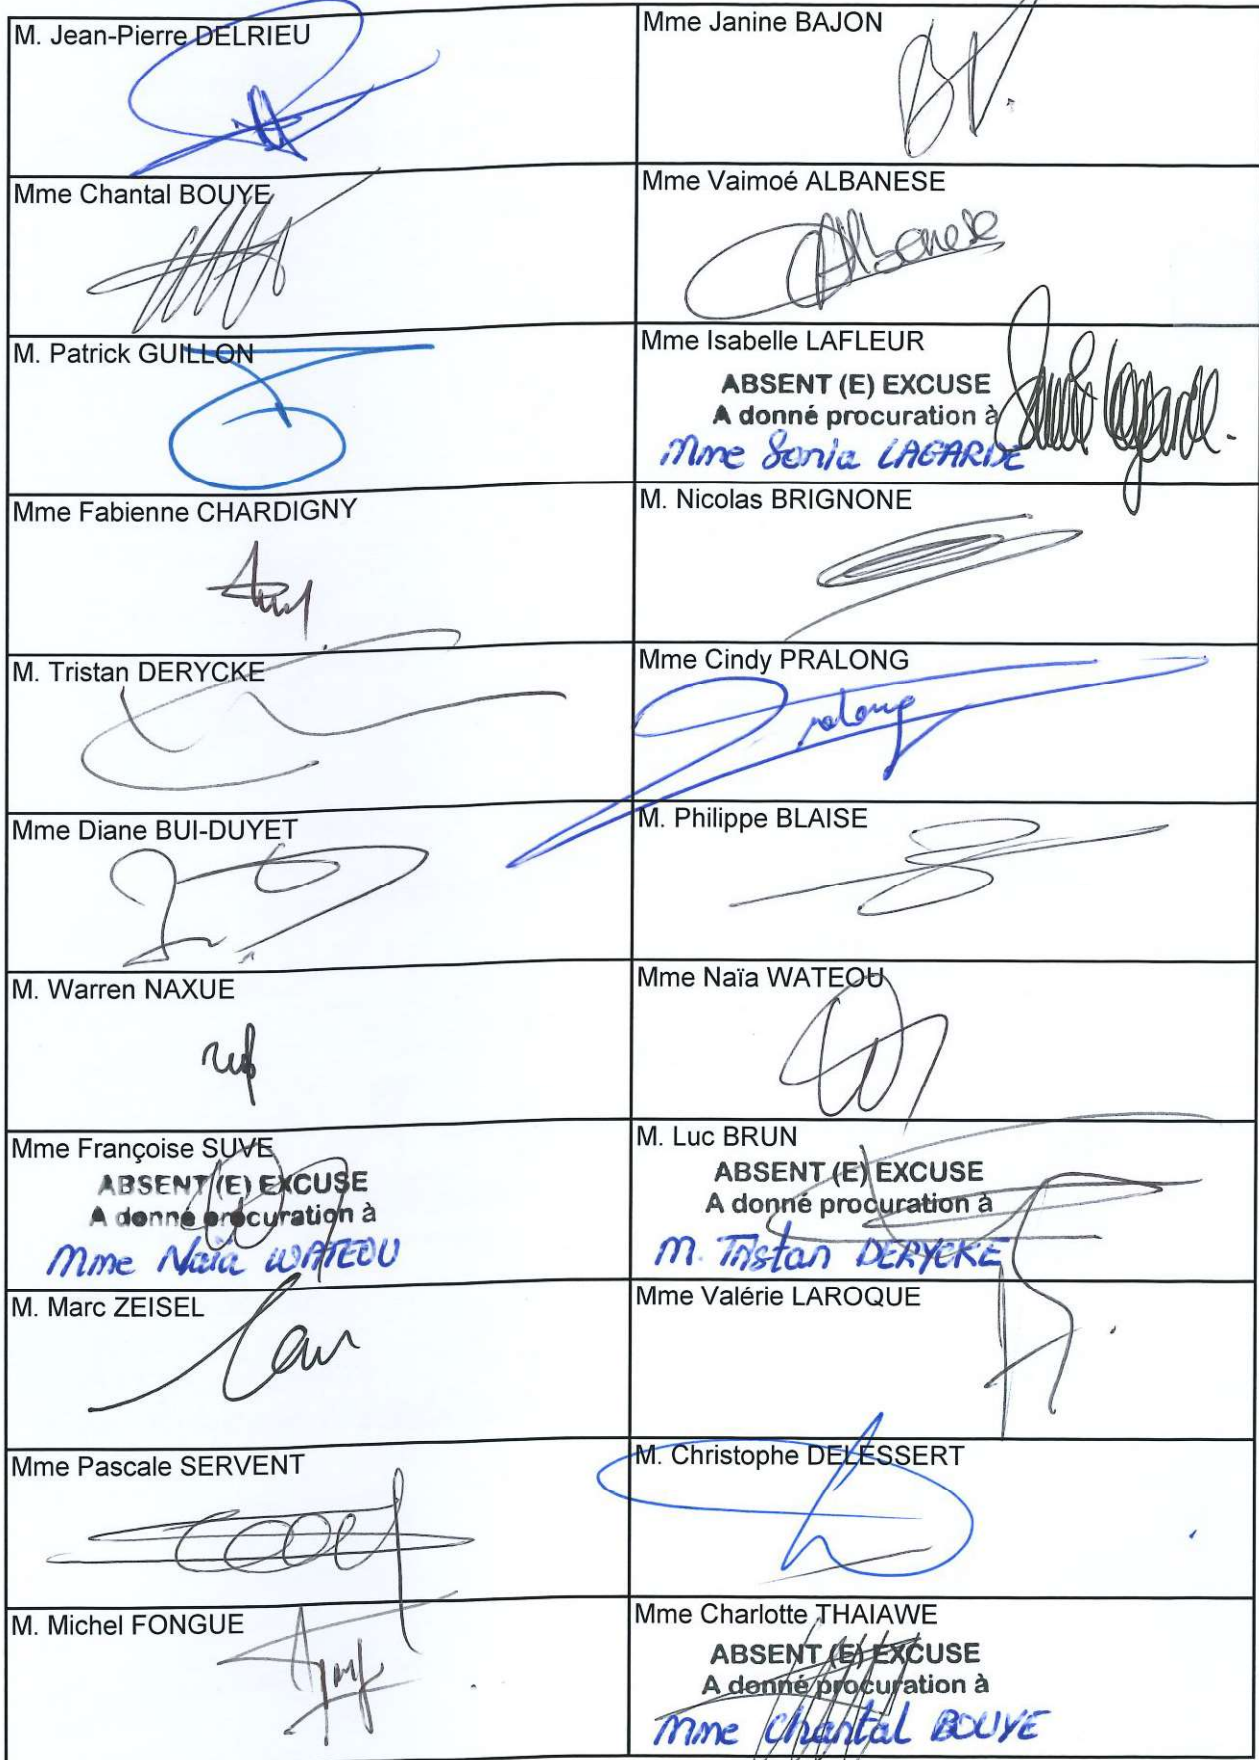 M. Jean-Pierre DELRIEU
Mme Janine BAJON
Mme Chantal BOUYE
Mme Vaimoé ALBANESE
Albanese
M. Patrick GUILLON
Mme Isabelle LAFLEUR
ABSENT (E) EXCUSE
A donné procuration à
Mme Sonia LAGARDE
Mme Fabienne CHARDIGNY
M. Nicolas BRIGNONE
M. Tristan DERYCKE
Mme Cindy PRALONG
Pralong
Mme Diane BUI-DUYET
M. Philippe BLAISE
M. Warren NAXUE
Mme Naïa WATEOU
Mme Françoise SUVE
ABSENT (E) EXCUSE
A donné procuration à
Mme Naïa WATEOU
M. Luc BRUN
ABSENT (E) EXCUSE
A donné procuration à
M. Tristan DERYCKE
M. Marc ZEISEL
Mme Valérie LAROQUE
Mme Pascale SERVENT
M. Christophe DELESSERT
M. Michel FONGUE
Mme Charlotte THAIAWE
ABSENT (E) EXCUSE
A donné procuration à
Mme Chantal BOUYE